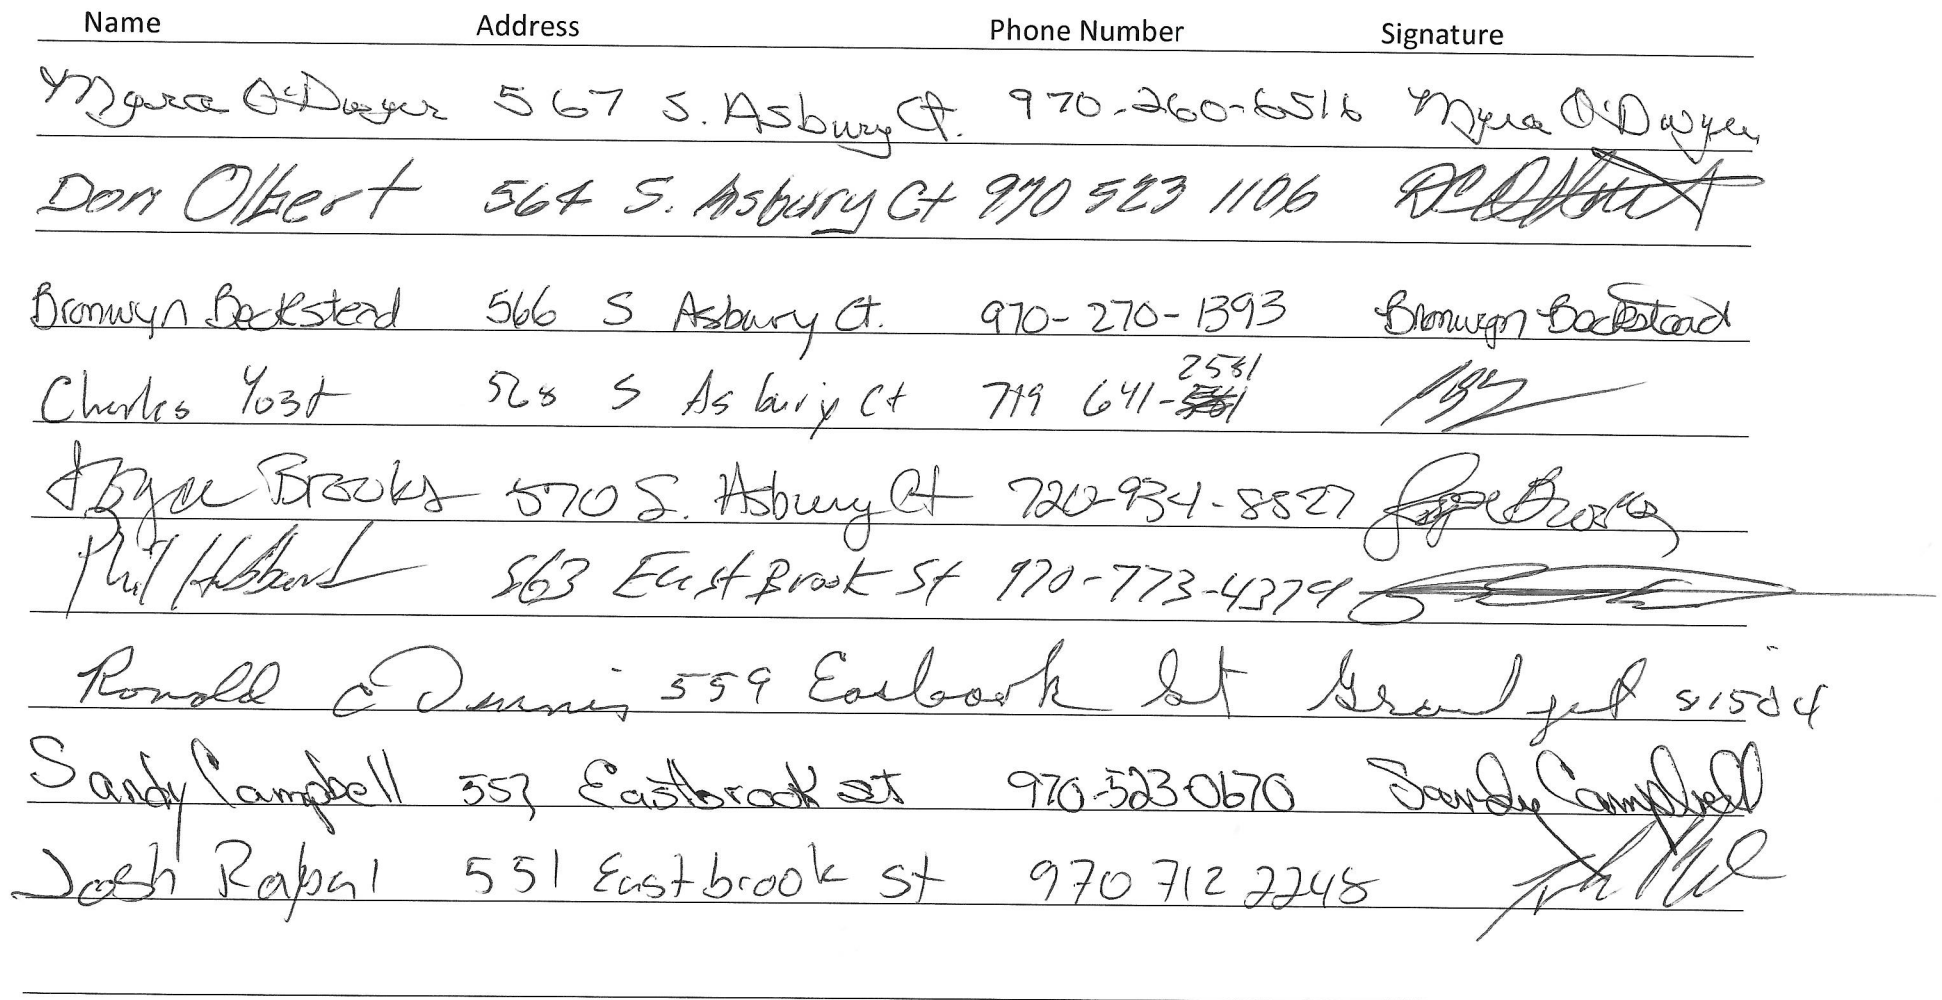 Name Address Phone Number Signature
Myra O'Dwyer 567 S. Asbury Ct. 970-260-6516 Myra O'Dwyer
Don Olbert 564 S. Asbury Ct 970 523 1106
Bronwyn Beckstead 566 S Asbury Ct. 970-270-1393 Bronwyn Beckstead
2581
Charles Yost 568 S Asbury Ct 719 641-
Joyce Brooks 570 S. Asbury Ct 720-934-8827 Joyce Brooks
Phil Hibbard 563 East Brook St 970-773-4379
Ronald C Dennis 559 Easbook St Grand jct 81504
Sandy Campbell 557 Eastbrook st 970-523-0670 Sandy Campbell
Josh Rapal 551 Eastbrook St 970 712 2248